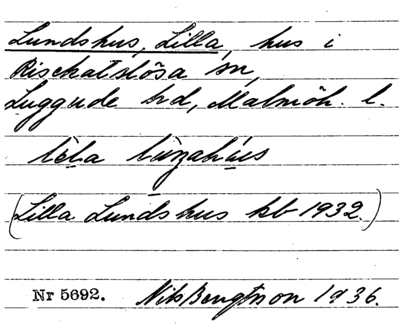 Lundshus, Lilla, hus i
Risekatslösa sn,
Luggude hd, Malmöh. l.
lìla lùnahús
(Lilla Lundshus kb 1932.)
Nr 5692. Nils Bengtsson 1936.